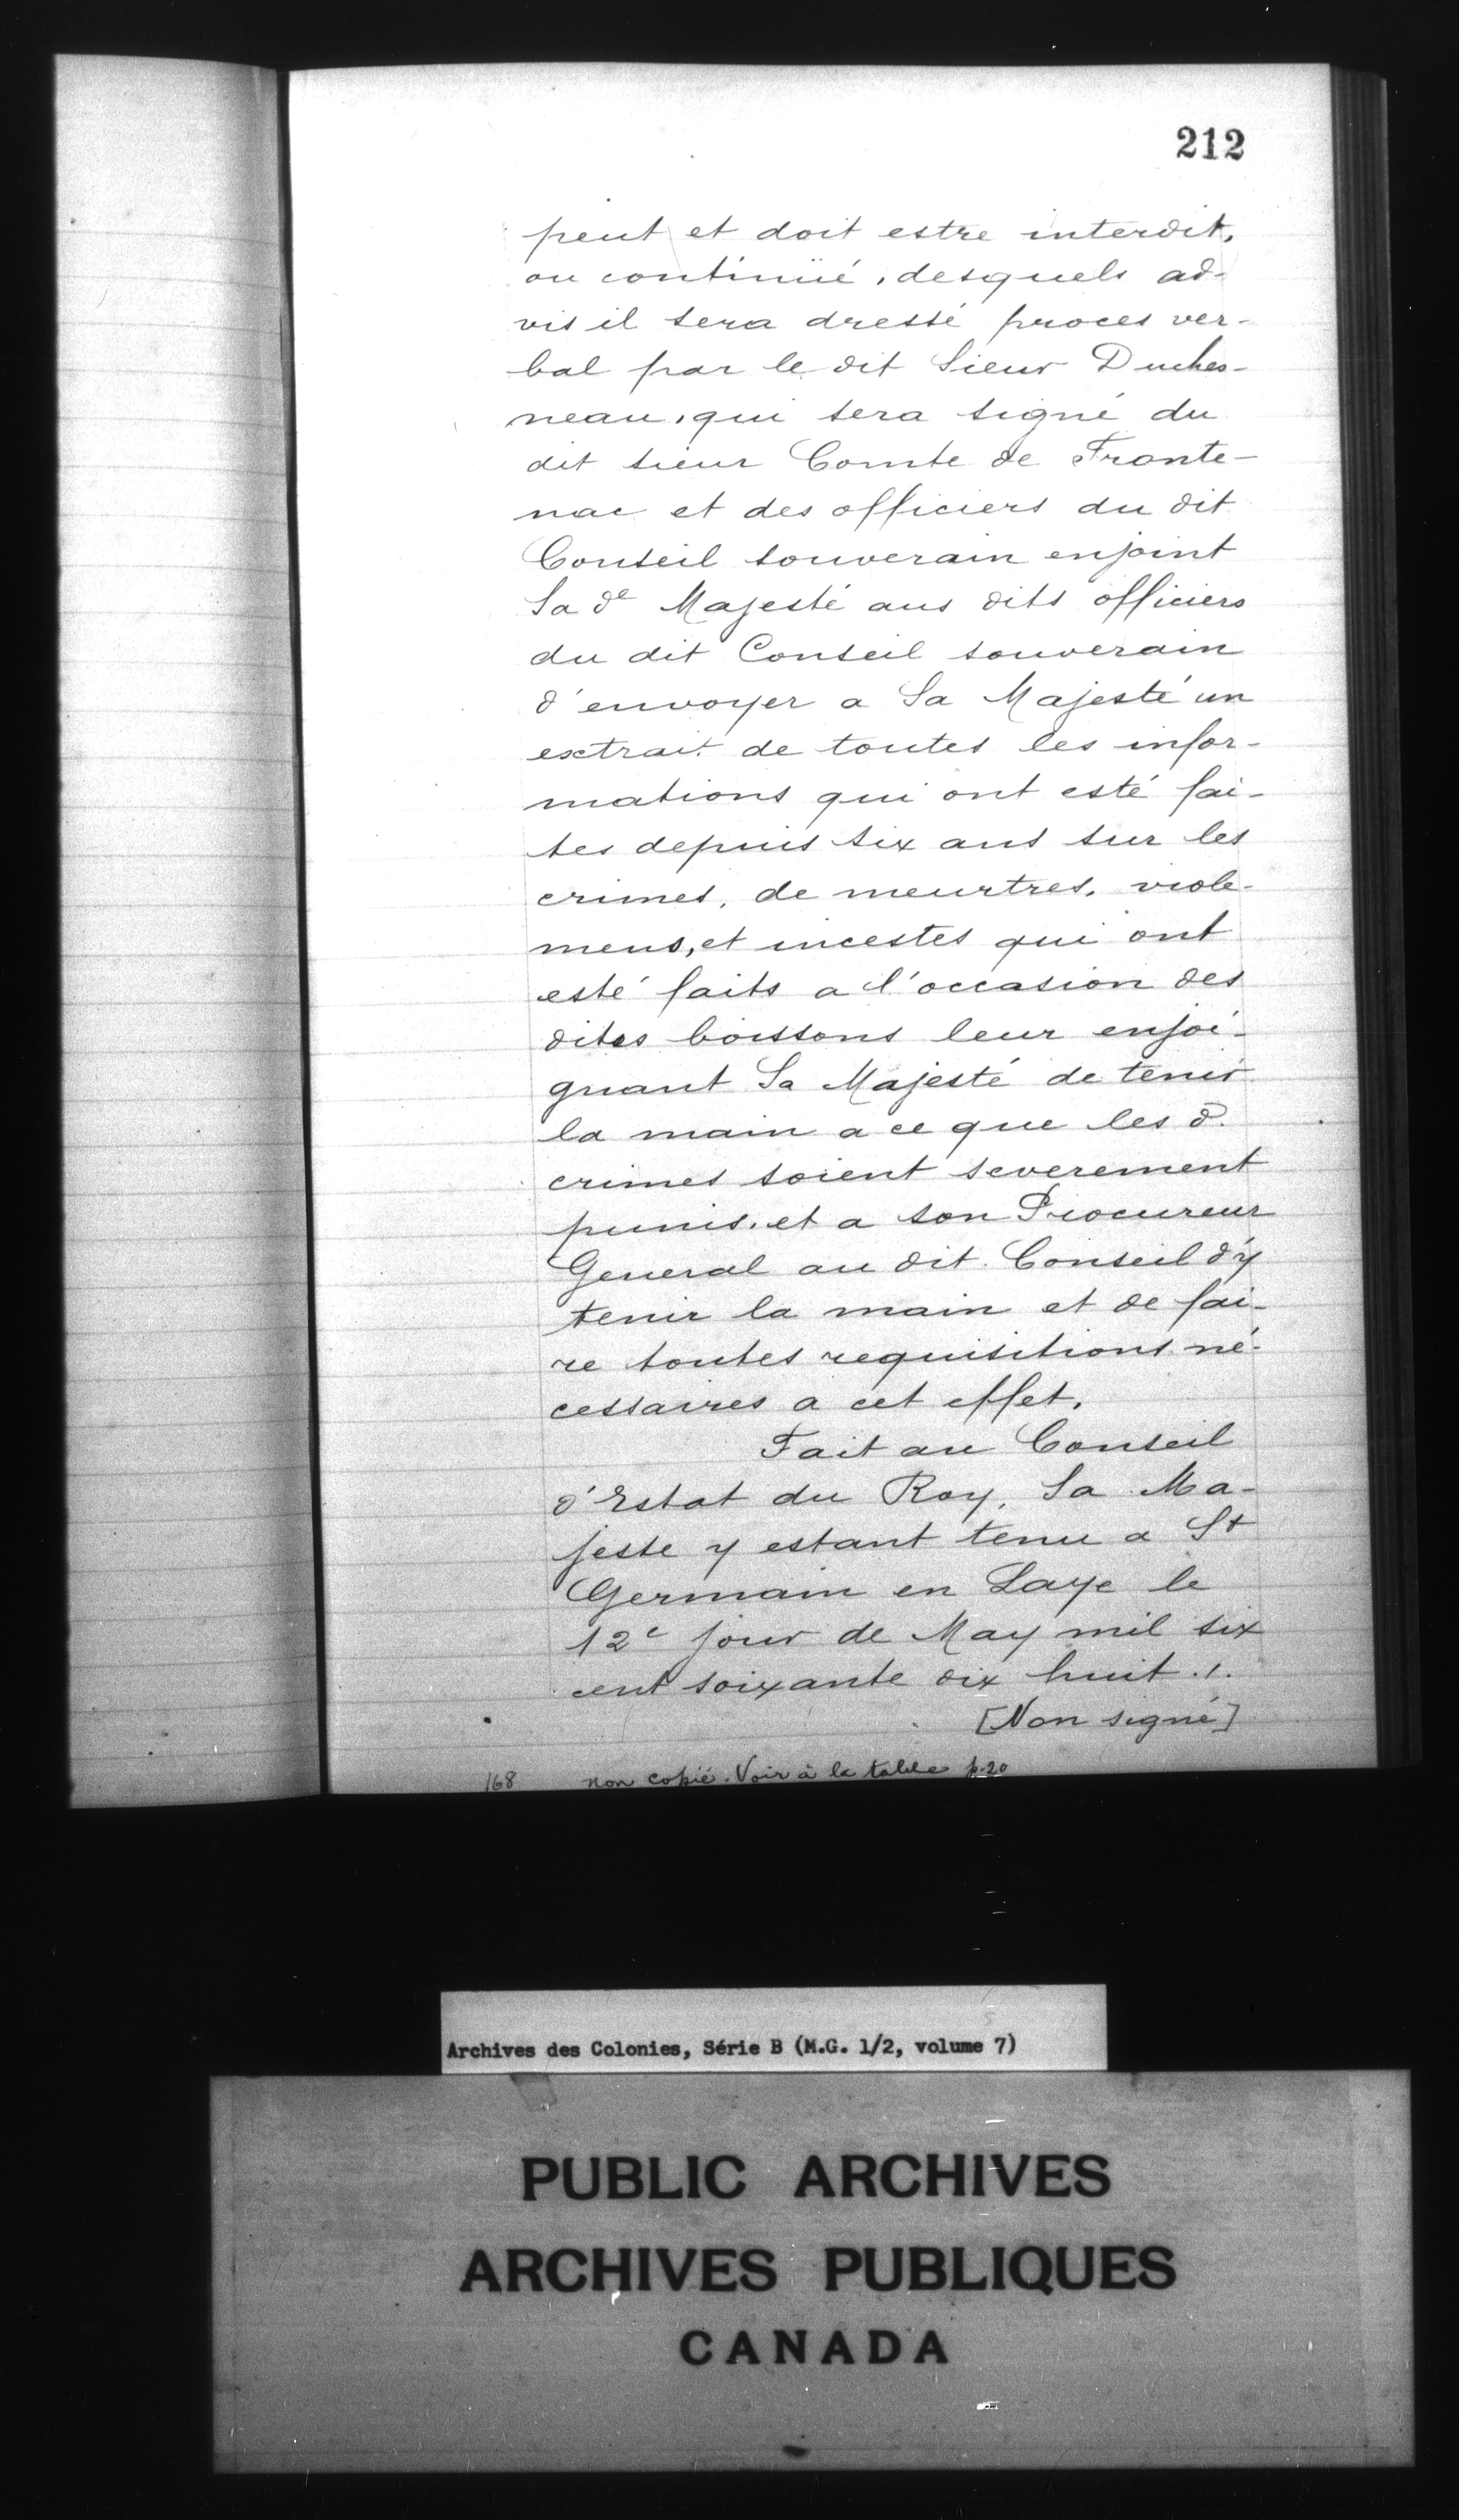 212
peut et doit estre interdit,
ou continüé, desquels ad-
vis il sera dressé proces ver-
bal par le dit Sieur Duches-
neau, qui sera signé du
dit sieur Comte de Fronte-
nac et des officiers du dit
Conseil souverain enjoint
Sa de Majesté aus dits officiers
du dit Conseil souverain
d'envoyer a Sa Majesté un
extrait de toutes les infor-
mations qui ont esté fai-
tes depuis six ans sur les
crimes, de meurtres, viole-
mens, et incestes qui ont
esté faits a l'occasion des
dites boissons leur enjoi-
gnant Sa Majesté de tenir
la main a ce que les d.
crimes soient severement
punis, et a son Procureur
General au dit Conseil d'y
tenir la main et de fai-
re toutes requisitions né-
cessaires a cet effet.
Fait au Conseil
d'Estat du Roy, Sa Ma-
jeste y estant tenu a St
Germain en Laye le
12e jour de May mil six
cent soixante dix huit ./.
[Non signé]
168 non copié. Voir à la table p. 20
Archives des Colonies, Série B (M.G. 1/2, volume 7)
PUBLIC ARCHIVES
ARCHIVES PUBLIQUES
CANADA